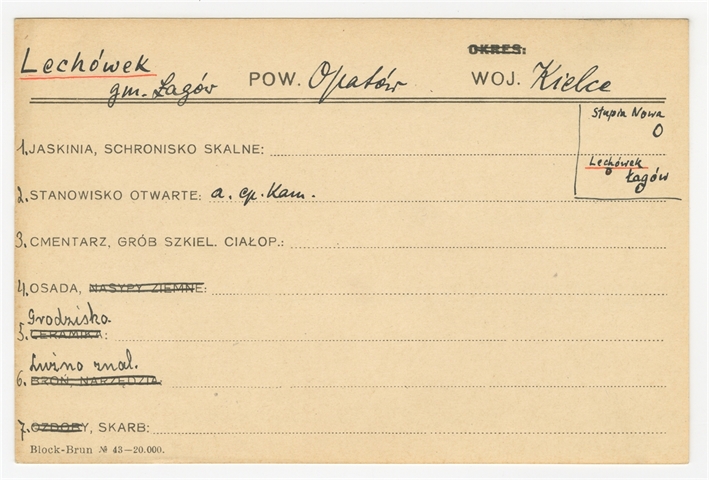 OKRES:
Lechówek
gm. Łagów POW. Opatów WOJ. Kielce
Słupia Nowa
Lechówek
Łagów
1. JASKINIA, SCHRONISKO SKALNE:
2. STANOWISKO OTWARTE: a. ep. Kam.
3. CMENTARZ, GRÓB SZKIEL. CIAŁOP.:
4. OSADA, NASYPY ZIEMNE:
Grodzisko
5. CERAMIKA:
Luźno znal.
6. BROŃ, NARZĘDZIA
7. OZDOBY, SKARB:
Block-Brun № 43—20.000.